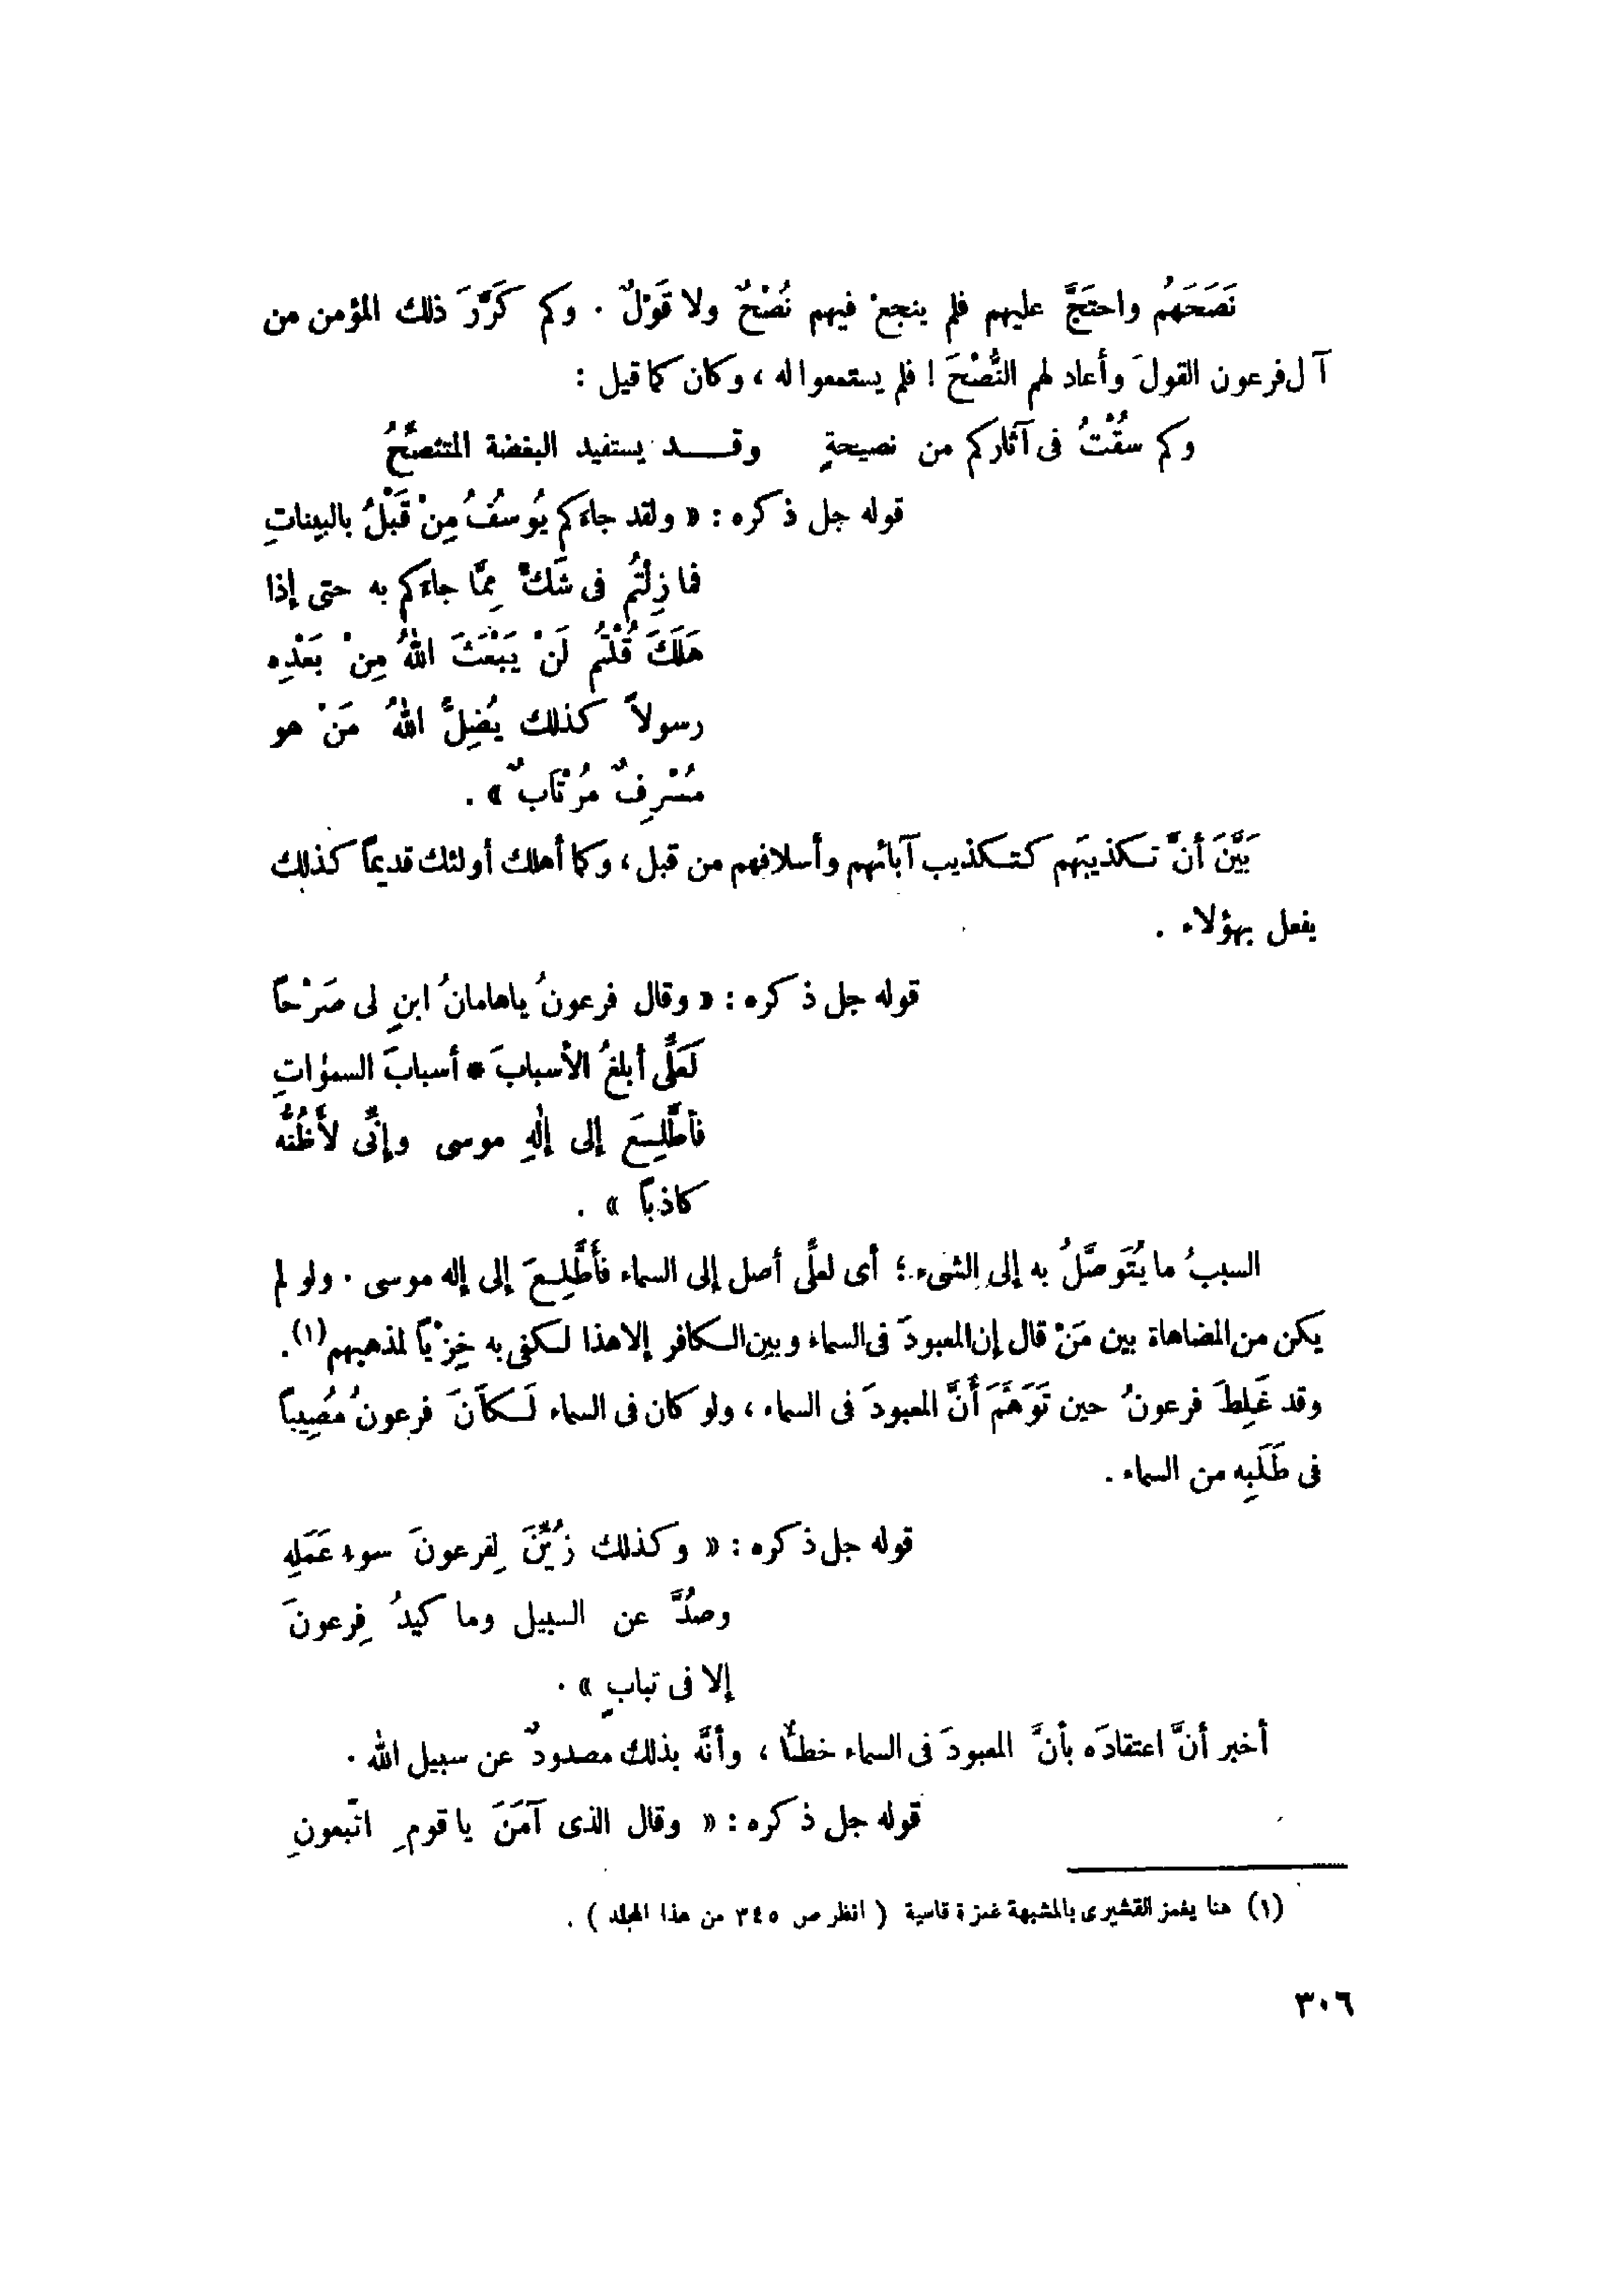 نَصَحَهُم واحتَجَّ عليهم فلم ينجعْ فيهم نُصْحٌ ولا قَوْلٌ . وكم كَرَّرَ ذلك المؤمن من
آل فرعون القولَ وأعاد لهم النُّصْحَ ! فلم يستمعوا له ، وكان كما قيل :
وكم سقْتُ فى آثاركم من نصيحةٍ وقــد يستفيد البغضة المتنصِّحُ
قوله جل ذكره : « ولقد جاءكم يُوسفُ مِنْ قَبْلُ بالبيناتِ
فما زِلْتُم فى شَكٍّ مِمَّا جاءكم به حتى إذا
هَلَكَ قُلْتُم لَنْ يَبْعَثَ اللهُ مِنْ بَعْدِه
رسولاً كذلك يُضِلُّ اللهُ مَنْ هو
مُسْرِفٌ مُرْتَابٌ » .
بَيَّنَ أنَّ تكذيبَهم كتكذيب آبائهم وأسلافهم من قبل ، وكما أهلك أولئك قديماً كذلك
يفعل بهؤلاء .
قوله جل ذكره : « وقال فرعونُ ياهامانُ ابنِ لى صَرْحاً
لَعَلِّى أبلغُ الأسبابَ * أسبابَ السمٰواتِ
فأطَّلِعَ إلى إلٰهِ موسى وإنِّى لأَظُنُّه
كاذباً » .
السببُ ما يُتَوصَّلُ به إلى الشىء ؛ أى لعلِّى أصل إلى السماء فأَطَّلِعَ إلى إله موسى . ولو لم
يكن من المضاهاة بين مَنْ قال إن المعبودَ فى السماء وبين الكافر إلا هذا لكفى به خِزْياً لمذهبهم(١) .
وقد غَلِطَ فرعونُ حين تَوَهَّمَ أنَّ المعبودَ فى السماء ، ولو كان فى السماء لَكَانَ فرعونُ مُصِيباً
فى طَلَبِه من السماء .
قوله جل ذكره : « وكذلك زُيِّنَ لِفرعونَ سوء عَمَلِه
وصُدَّ عن السبيل وما كيدُ فِرعونَ
إلا فى تبابٍ » .
أخبر أنَّ اعتقادَه بأنَّ المعبودَ فى السماء خطأٌ ، وأنَّه بذلك مصدودٌ عن سبيل الله .
قوله جل ذكره : « وقال الذى آمَنَ يا قومِ اتَّبعونِ
(١) هنا يغمز القشيرى بالمشبهة غمزة قاسية ( انظر ص ٣٤٥ من هذا المجلد ) .
٣٠٦